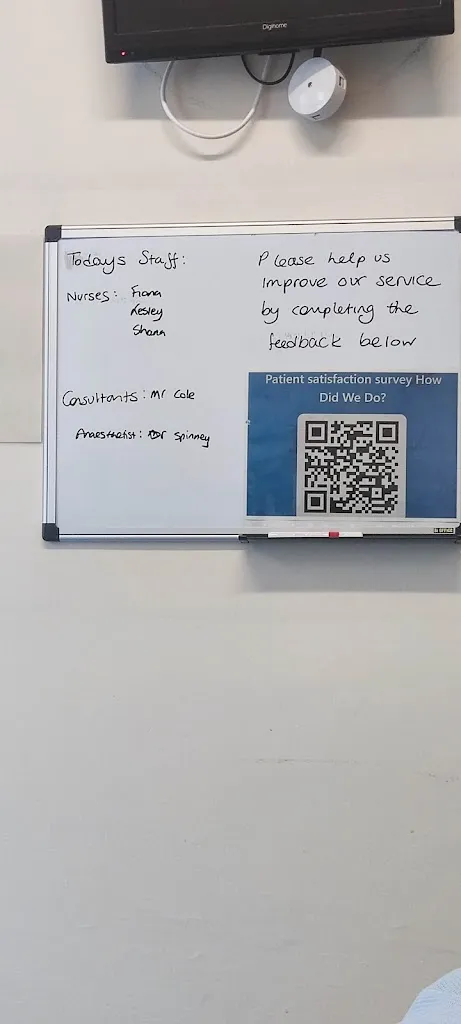 Digihome
Todays Staff:
Nurses: Fiona
Lesley
Shana
Consultants: Mr Cole
Anaesthetist: Dr Spinney
Please help us
improve our service
by completing the
feedback below
Patient satisfaction survey How
Did We Do?